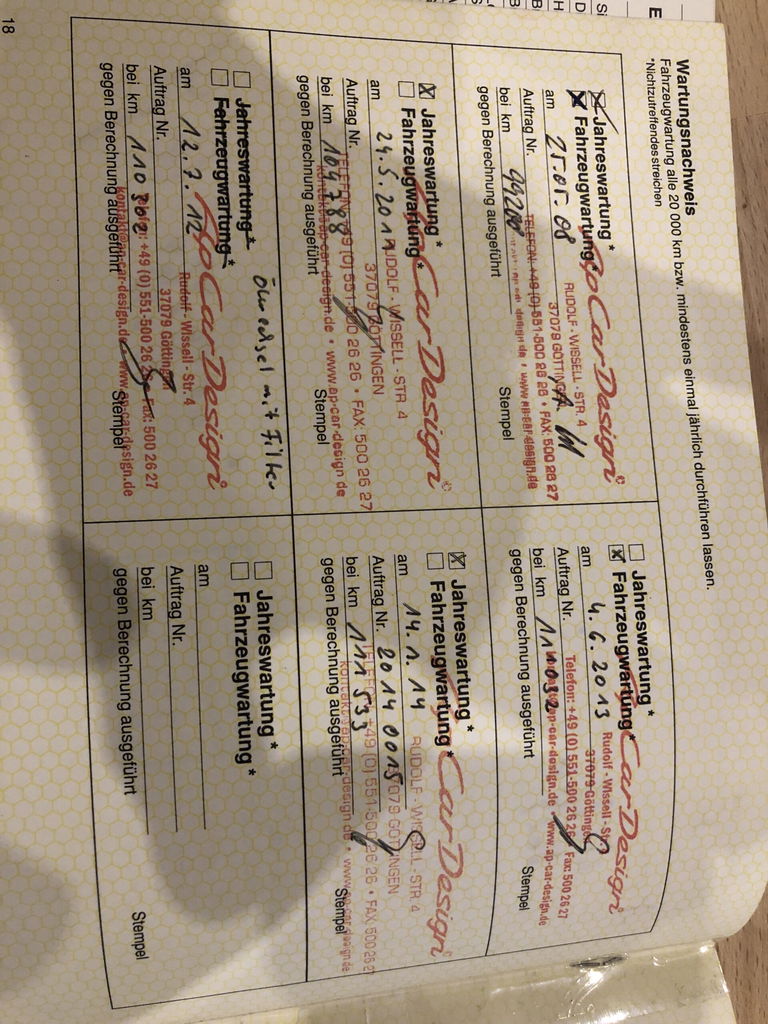 Wartungsnachweis
Fahrzeugwartung alle 20 000 km bzw. mindestens einmal jährlich durchführen lassen.
*Nichtzutreffendes streichen
Jahreswartung *
Fahrzeugwartung *
am 25.01.08
Auftrag Nr.
bei km
gegen Berechnung ausgeführt
Stempel
apCarDesign©
RUDOLF - WISSELL - STR. 4
37079 GÖTTINGEN
TELEFON: +49 (0) 551-500 26 26 • FAX: 500 26 27
www.ap-car-design.de
Jahreswartung *
Fahrzeugwartung *
am 24.5.2011
Auftrag Nr.
bei km 109788
gegen Berechnung ausgeführt
Stempel
apCarDesign©
RUDOLF - WISSELL - STR. 4
37079 GÖTTINGEN
TELEFON: +49 (0) 551-500 26 26 • FAX: 500 26 27
kontakt@ap-car-design.de • www.ap-car-design.de
Ölwechsel mit Filter
Jahreswartung *
Fahrzeugwartung *
am 12.7.12
Auftrag Nr.
bei km 110 302
gegen Berechnung ausgeführt
Stempel
apCarDesign
Rudolf - Wissell - Str. 4
37079 Göttingen
Telefon: +49 (0) 551-500 26 26 Fax: 500 26 27
kontakt@ap-car-design.de www.ap-car-design.de
Jahreswartung *
Fahrzeugwartung *
am 4.6.2013
Auftrag Nr.
bei km 111032
gegen Berechnung ausgeführt
Stempel
apCarDesign
Rudolf - Wissell - Str. 4
37079 Göttingen
Telefon: +49 (0) 551-500 26 26 Fax: 500 26 27
kontakt@ap-car-design.de • www.ap-car-design.de
Jahreswartung *
Fahrzeugwartung *
am 14.1.14
Auftrag Nr. 2014 0015
bei km 111533
gegen Berechnung ausgeführt
Stempel
apCarDesign©
RUDOLF - WISSELL - STR. 4
37079 GÖTTINGEN
TELEFON: +49 (0) 551-500 26 26 • FAX: 500 26 27
kontakt@ap-car-design.de • www.ap-car-design.de
Jahreswartung *
Fahrzeugwartung *
am
Auftrag Nr.
bei km
gegen Berechnung ausgeführt
Stempel
18